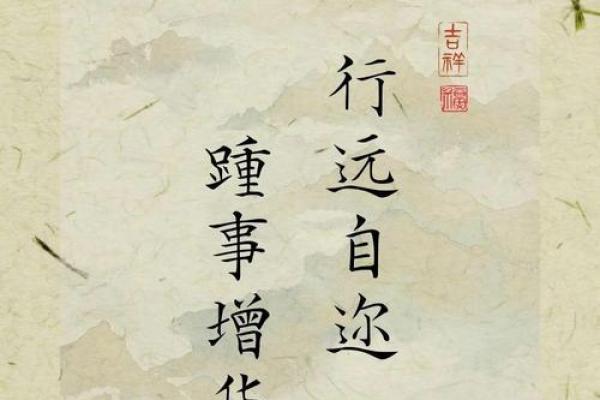 吉祥
福
行远自迩
踵事增华